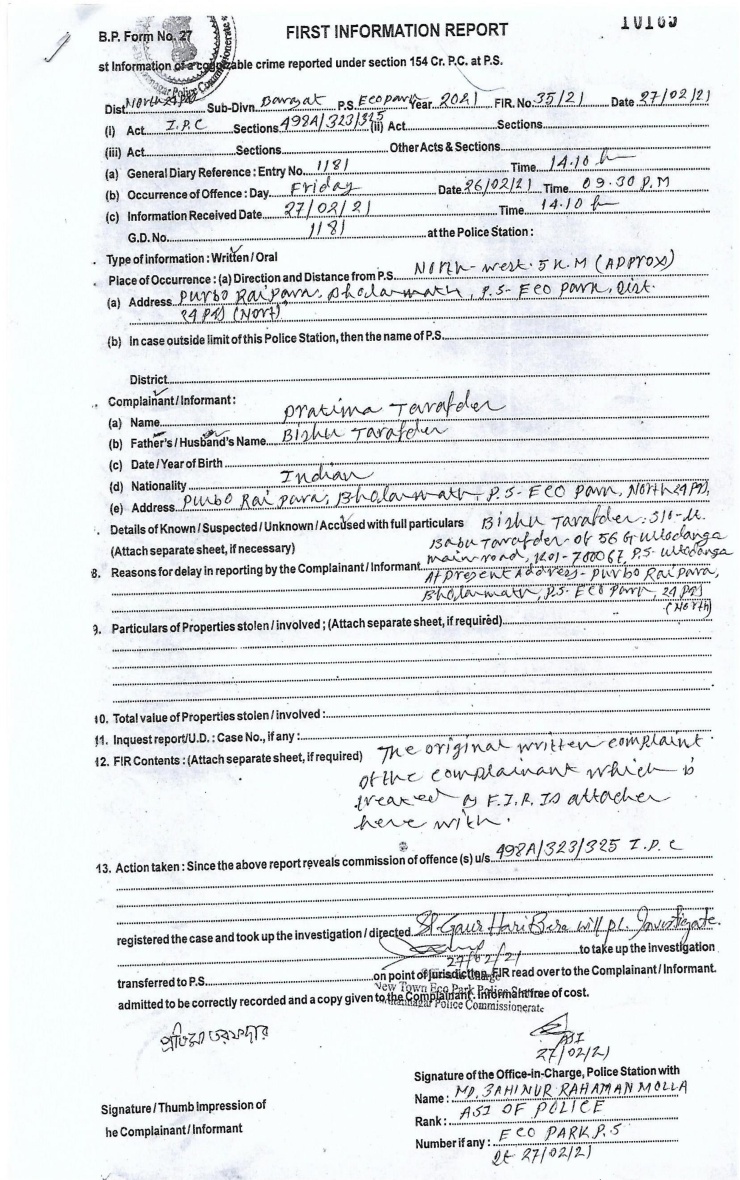 B.P. Form No. 27
FIRST INFORMATION REPORT
st Information of a cognizable crime reported under section 154 Cr. P.C. at P.S.
Dist. North 24 PS Sub-Divn. Barasat P.S. Eco park Year 2021 FIR. No. 35/21 Date 27/02/21
(i) Act I.P.C Sections 498A/323/325 (ii) Act Sections
(iii) Act Sections Other Acts & Sections
(a) General Diary Reference : Entry No. 1181 Time 14.10 h
(b) Occurrence of Offence : Day Friday Date 26/02/21 Time 09.30 P.M
(c) Information Received Date 27/02/21 Time 14.10 h
G.D. No. 1181 at the Police Station :
Type of information : Written / Oral
Place of Occurrence : (a) Direction and Distance from P.S. North-west. 5 K.M (APPROX)
(a) Address Purbo Raipara, Bholarmath, P.S- Eco Park, Dist.
24 PS (North)
(b) In case outside limit of this Police Station, then the name of P.S.
District
Complainant / Informant :
(a) Name Pratima Tarafder
(b) Father's / Husband's Name Bishu Tarafder
(c) Date / Year of Birth
(d) Nationality Indian
(e) Address Purbo Rai para, Bholarmath, P.S- Eco Park, North 24 PS,
Details of Known / Suspected / Unknown / Accused with full particulars Bishu Tarafder. S/o-Lt.
(Attach separate sheet, if necessary) Babu Tarafder of 56 G Ultodanga
main road, Kol-700067, P.S- Ultodanga
8. Reasons for delay in reporting by the Complainant / Informant At present Address- Purbo Raipara,
Bholarmath, P.S- Eco Park, 24 PS
(North)
9. Particulars of Properties stolen / involved ; (Attach separate sheet, if required)
10. Total value of Properties stolen / involved :
11. Inquest report/U.D. : Case No., if any :
12. FIR Contents : (Attach separate sheet, if required) The original written complaint
of the complainant which is
treated as F.I.R. is attached
here with.
13. Action taken : Since the above report reveals commission of offence (s) u/s 498A/323/325 I.P.C
registered the case and took up the investigation / directed SI Gaur Hari Bera will pl. Investigate.
27/02/21 to take up the investigation
transferred to P.S. on point of jurisdiction. FIR read over to the Complainant / Informant.
New Town Eco Park Police Station
admitted to be correctly recorded and a copy given to the Complainant. Informant free of cost.
Police Commissionerate
প্রতিমা তরফদার
ASI
27/02/21
Signature of the Office-in-Charge, Police Station with
Name : MD. JAHINUR RAHAMAN MOLLA
Signature / Thumb Impression of
Rank : ASI OF POLICE
he Complainant / Informant
Number if any : ECO PARK P.S
Dt 27/02/21